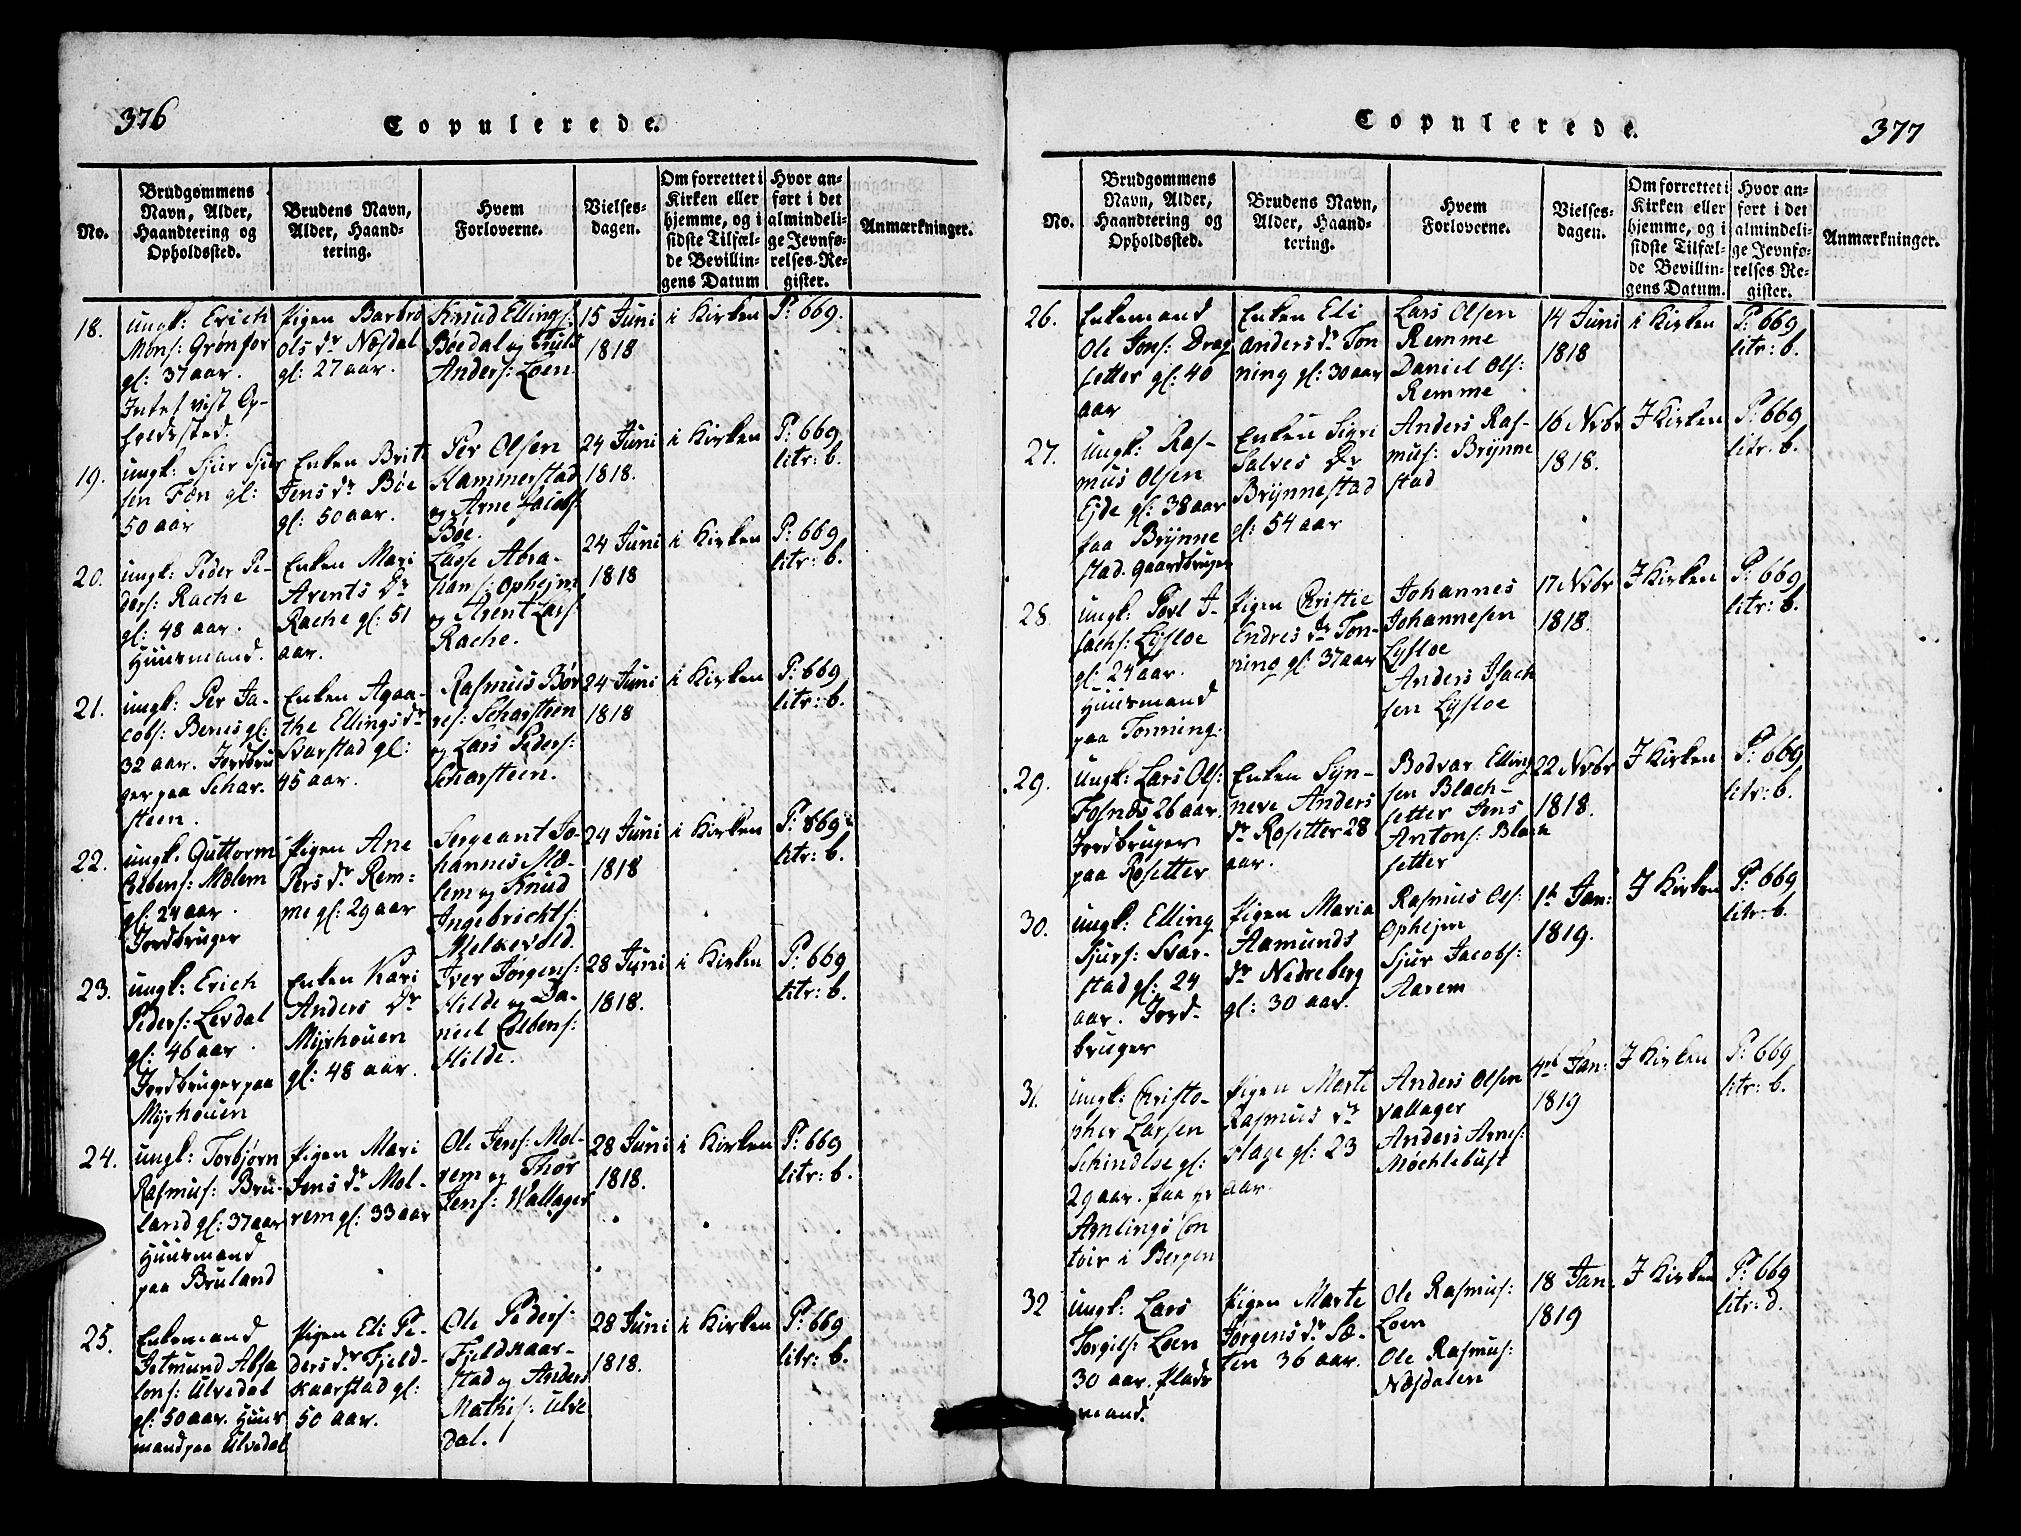 376
Copulerede.
No.
Brudgommens
Navn, Alder,
Haandtering og
Opholdssted.
Brudens Navn,
Alder, Haand-
tering.
Hvem
Forloverne.
Vielses-
dagen.
Om forrettet i
Kirken eller
hjemme, og i
sidste Tilfæl-
de Bevillin-
gens Datum
Hvor an-
ført i det
almindeli-
ge Jevnfø-
relses-Re-
gister.
Anmærkninger.
18.
ungk: Erich
Mons: Grønfor
gl: 37 aar.
vist Op-
holdssted.
Pigen Barbro
Ols dr Næsdal
gl: 27 aar.
Knud Ellings:
Bøedal og Truls
Anders: Loen
15 Juni
1818
i Kirken
P: 669.
19.
ungk: Sjur Sjur
sen Fæn gl:
50 aar
Enken Brit
Jens dr Bøe
gl: 50 aar.
Per Olsen
Hammerstad
og Arne Jacobs:
Bøe.
24 Juni
1818.
i Kirken
P: 669
litr: b.
20.
ungk: Peder Pe-
ders: Rache
gl: 48 aar.
Huusmand.
Enken Mari
Arents Dr
Rache gl: 51
aar.
Lasse Abra-
hams: Ophejm
og Arent Lars:
Rache.
24 Juni
1818
i Kirken
P: 669
litr: b.
21.
ungk: Per Ja-
cobs: Benes gl:
32 aar. Jordbru
ger paa Schar-
steen.
Enken Agaa-
the Ellings dr
Svarstad gl:
45 aar.
Rasmus Bør
res: Scharsteen
og Lars Peders:
Scharsteen.
24 Juni
1818
i Kirken
P: 669
litr: b.
22.
ungk. Guttorm
Mælem
gl: 24 aar.
Jordbruger
Pigen Ane
Pers dr Rem-
me gl: 29 aar
Sergeant Jo-
hannes Mæ-
lem og Knud
Ingebrickts:
Melkevold.
24 Juni
1818
i Kirken
P: 669
litr: b.
23.
ungk: Erich
Peders: Levdal
gl: 46 aar.
Jordbruger paa
Myrhouen
Enken Kari
Anders Dr
Myrhouen
gl: 48 aar.
Iver Jørgens:
Hilde og Da-
niel Colbens:
Hilde.
28 Juni
1818.
i Kirken
P: 669
litr: b.
24.
ungk: Torbjørn
Rasmus: Bru-
land gl: 37 aar
Huusmand
paa Bruland
Pigen Mari
Jens dr Mol-
rem gl: 33 aar
Ole Jens: Mol-
rem og Thor
Jens: Wallager
28 Juni
1818.
i Kirken
P: 669
litr: b.
25.
Enkemand
Jetmund Absa
lons: Ulvedal
gl: 50 aar. Huus
mand paa Ulvedal
Pigen Eli Pe-
ders dr Fjeld-
skaarstad gl:
50 aar.
Ole Peders:
Fjeldskaar-
stad og Anders
Mathis: Ulve
dal.
28 Juni
1818.
i Kirken
P: 669
litr: b.
377
Copulerede.
No.
Brudgommens
Navn, Alder,
Haandtering og
Opholdssted.
Brudens Navn,
Alder, Haand-
tering.
Hvem
Forloverne.
Vielses-
dagen.
Om forrettet i
Kirken eller
hjemme, og i
sidste Tilfæl-
de Bevillin-
gens Datum.
Hvor an-
ført i det
almindeli-
ge Jevnfø-
relses-Re-
gister.
Anmærkninger.
26.
Enkemand
Ole Søns: Drag
setter gl: 40
aar
Enken Eli
Anders dr Ton
ning gl: 30 aar
Lars Olsen
Remme
Daniel Ols:
Remme
14 Juni
1818
i Kirken
P: 669
litr: b.
27.
Ungk: Ras-
mus Olsen
Ejde gl: 38 aar
paa Brynne
stad. Gaardbruger
Enken Sigri
Salves Dr
Brynnestad
gl: 54 aar
Anders Ras-
mus: Brynne
stad
16 Nvbr
1818.
I Kirken
P: 669
litr. b.
28.
ungk: Povl I-
sachs: Lysloe
gl: 24 aar.
Huusmand
paa Tonning.
Pigen Christie
Endres dr Ton-
ning gl: 37 aar
Johannes
Johannesen
Lysloe
Anders Isach
sen Lysloe
17 Nvbr
1818.
I Kirken
P: 669
litr: b.
29.
ungk: Lars Ols:
Fosnæs 26 aar.
Jordbruger
paa Rosetter
Enken Syn-
neve Anders
dr Rosetter 28
aar.
Bodvar Elling
sen Blach-
setter Jens
Antons: Blach
setter
22 Nvbr
1818.
I Kirken
P: 669
litr: b.
30.
ungk: Elling
Sjurs: Svar-
stad gl: 24
aar. Jord-
bruger
Pigen Maria
Aamunds
dr Nedreberg
gl: 30 aar.
Rasmus Ols:
Ophejm
Sjur Jacobs:
Aarem
1t Jan:
1819.
I Kirken
P: 669
litr: b.
31.
ungk: Christo-
pher Larsen
Schindloe gl:
29 aar. paa
Con
toir i Bergen
Pigen Marte
Rasmus dr
Hage gl: 23
aar.
Anders Olsen
Vallager
Anders Arnes:
Møcklebust
Jan:
1819
I Kirken
P: 669
litr: b.
32
ungk: Lars
Torgils: Loen
30 aar. Plads
mand.
Pigen Marte
Jørgens dr Sæ-
ten 36 aar.
Ole Rasmus:
Loen
Ole Rasmus:
Næsdalen
18 Jan.
1819
I Kirken
P: 669
litr: d.